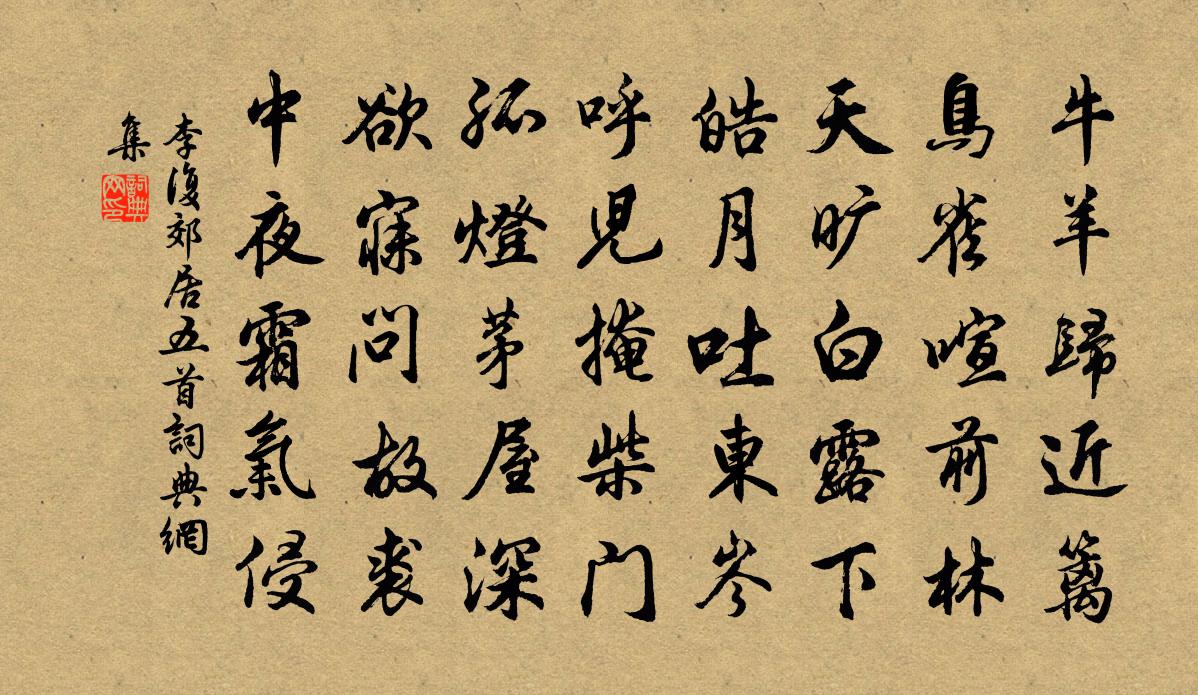 牛羊歸近篱
鳥雀喧前林
天旷白露下
皓月吐東岑
呼児掩柴门
孤燈茅屋深
欲寐问故裘
中夜霜氣侵
李復郊居五首詞典網
集
詞典网印